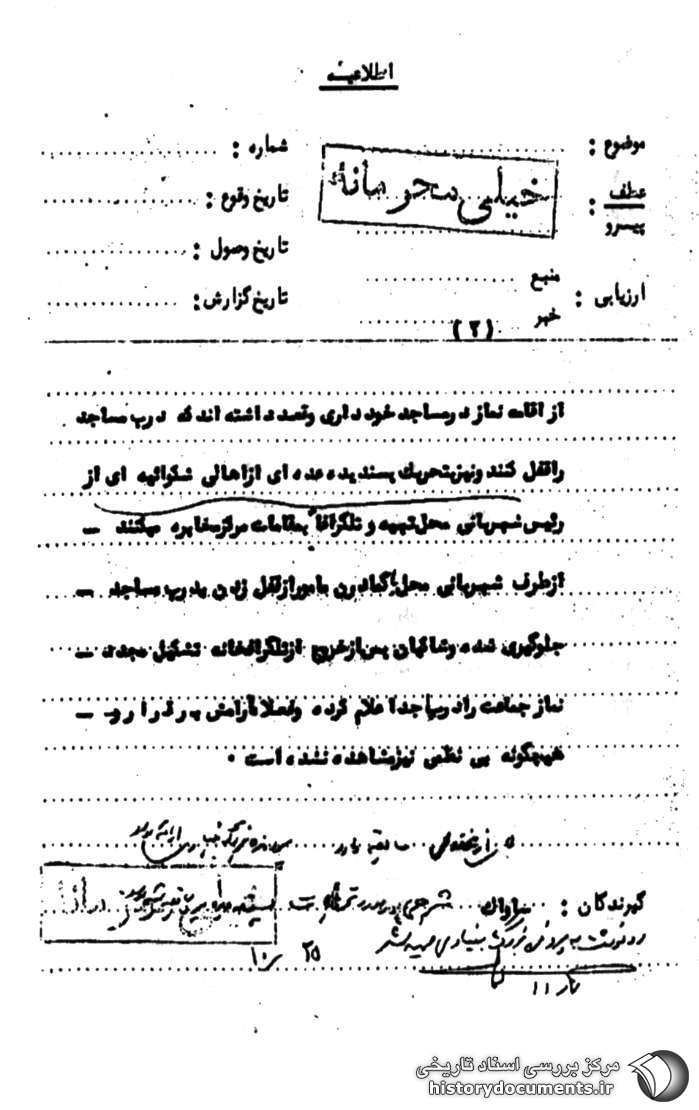 اطلاعیه
موضوع : شماره :
خیلی محرمانه
عطف : تاریخ وقوع :
پیرو
تاریخ وصول :
منبع
ارزیابی : تاریخ گزارش :
خبر
(۲)
از اقامه نماز در مساجد خودداری و قصد داشته اند که درب مساجد
را قفل کنند و نیز بتحریک پسندیده عده ای از اهالی شکوائیه ای از
رئیس شهربانی محل تهیه و تلگرافاً بمقامات مرکز مخابره میکنند –
از طرف شهربانی محل با گماردن مامور از قفل زدن بدرب مساجد –
جلوگیری شده و شاکیان پس از خروج از تلگرافخانه تشکیل مجدد –
نماز جماعت را در مساجد اعلام کرده و فعلا آرامش برقرار و –
هیچگونه بی نظمی نیز مشاهده نشده است .
گیرندگان : ساواک
۲۵ /۱۰
۱۱
مرکز بررسی اسناد تاریخی
historydocuments.ir